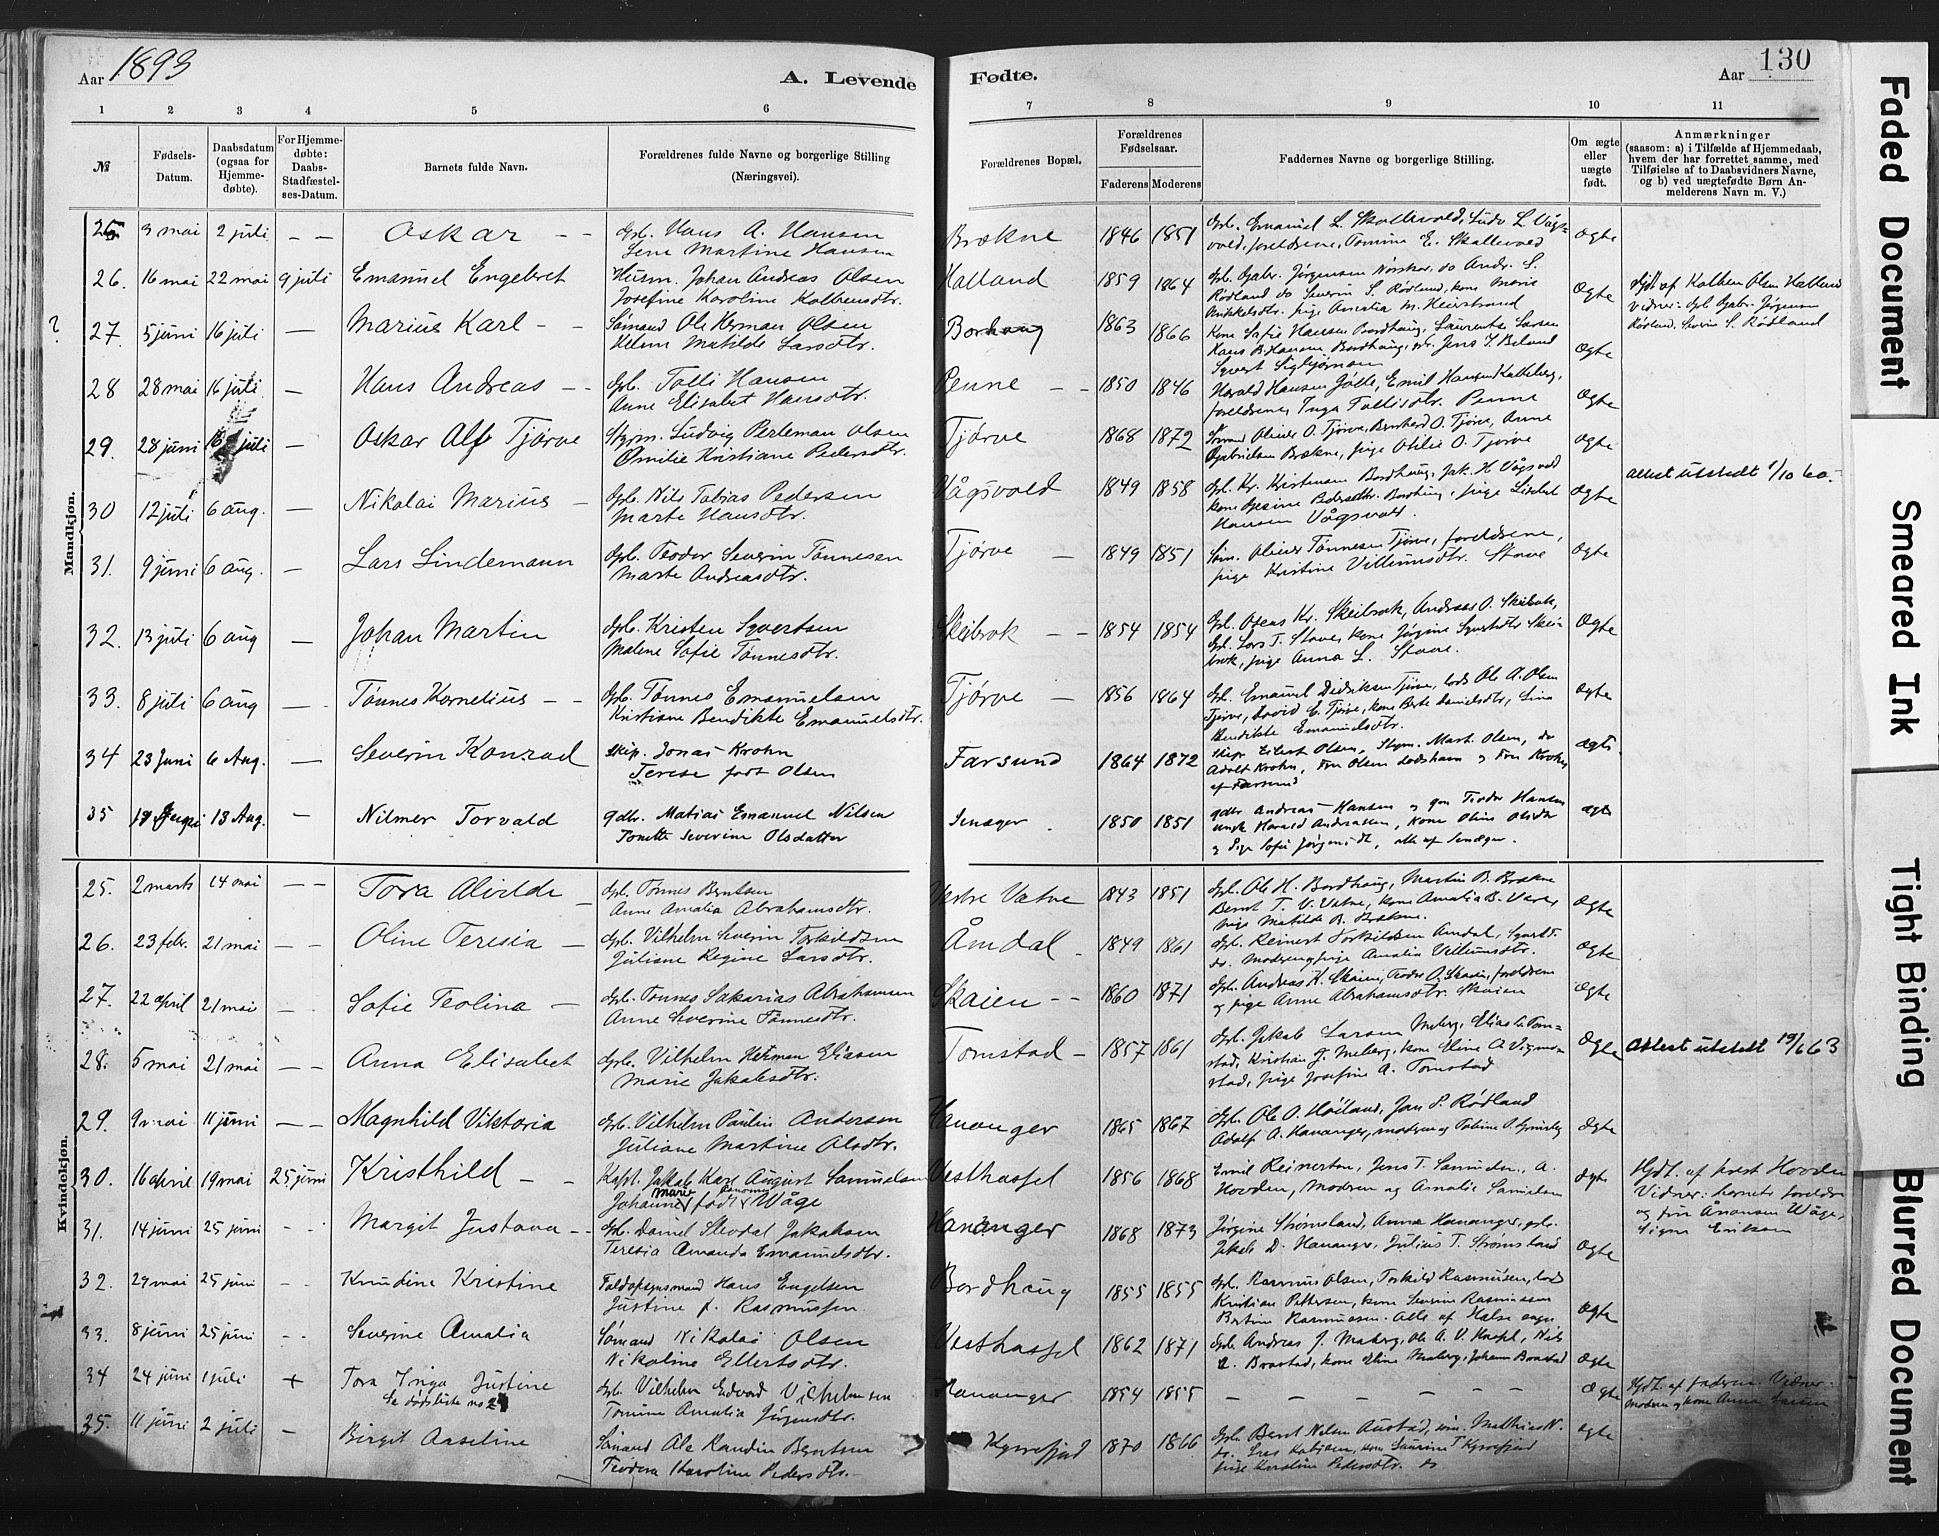 Aar 1893
A. Levende Fødte.
Aar 130
1 2 3 4 5 6 7 8 9 10 11
№
Fødsels-Datum.
Daabsdatum (ogsaa for Hjemmedøbte).
For Hjemmedøbte: Daabs-Stadfæstelses-Datum.
Barnets fulde Navn.
Forældrenes fulde Navne og borgerlige Stilling (Næringsvei).
Forældrenes Bopæl.
Forældrenes Fødselsaar.
Faderens Moderens
Faddernes Navne og borgerlige Stilling.
Om ægte eller uægte født.
Anmærkninger
(saasom: a) i Tilfælde af Hjemmedaab,
hvem der har forrettet samme, med
Tilføielse af to Daabsvidners Navne,
og b) ved uægtefødte Børn An-
melderens Navn m. V.)
Mandkjøn.
25 3 mai 2 juli — — Oskar — — Gbl. Hans A. Hansen
Lene Martine Hansen
Brækne 1846 1851 Gbl. Emanuel L. Skollevold, Ludv L Vågs-
vold, foreldrene, Tomine E. Skallevold Ægte
26. 16 mai 22 mai 9 juli Emanuel Engebret Husm. Johan Andreas Olsen
Josefine Karoline Kolbensdtr.
Halland 1859 1864 Gbl. Gabr. Jørgensen do Andr. S.
Rødland do Severin S. Rødland, kone Marie
pige Amalia M. Ægte
Hjdt. af Kolben Olsen Halland
Vidner: Gbl. Gabr. Jørgensen
Rødland, Severin S. Rødland
? 27. 5 juni 16 juli — Marius Karl - - Sømand Ole Herman Olsen
Helene Matilde Larsdtr.
Borhaug 1863 1866 Kone Sofie Hansen Bordhaug, Laurents Larsen
Hans B. Hansen Bordhaug,
Ægte
28 28 mai 16 juli — Hans Andreas - - Gbl. Tolli Hansen
Anne Elisabet Hansdtr.
Penne - - 1850 1846 Harald Hansen Jølle, Emil Hansen
foreldrene, Inga Tollisdtr. Penne Ægte
29. 28 juni 16 juli — Oskar Alf Tjørve Styrm. Ludvig Perleman Olsen
Emilie Kristiane Pedersdtr.
Tjørve 1868 1872 Sømand Oliver O. Tjørve, Bernhard O. Tjørve, Anne
Gabrielsen Brækne, pige Otilie O. Tjørve Ægte
30 12 juli 6 aug. — Nikolai Marius - Gbl. Nils Tobias Pedersen
Marte Hansdtr.
Vågsvold 1849 1858 Gbl. Kr. Kristensen Bordhaug, Jak. H Vågsvold
kone Gesine Pedersdtr. Bordhaug, pige Lisabet
Hansen Vågsvold. Ægte
attest utstedt 1/10 60.
31. 9 juni 6 aug. — Lars Lindemann Gbl. Teodor Severin Tønnesen
Marte Andreasdtr.
Tjørve — 1849 1851 Søm. Oliver Tønnesen Tjørve, foreldrene,
pige Kristine Villumsdtr. Stave Ægte
32. 13 juli 6 aug — Johan Martin Gbl. Kristen Syvertsen
Malene Sofie Tønnesdtr.
Skeibrok - - 1854 1854 Gbl. Kr. Skeibrok, Andreas O. Skeibrok,
Gbl. Lars T. Stave, kone Jørgine Syvertsdtr Skei-
brok, pige Anna L. Stave. Ægte
33. 8 juli 6 aug — Tønnes Kornelius - - Gbl. Tønnes Emanuelsen
Kristiane Bendikte Emanuelsdtr.
Tjørve - 1856 1864 Gbl. Emanuel Didriksen Tjørve, lods Ole A. Olsen
Tjørve, David E. Tjørve, kone Berte Danielsdtr, Lina
Bendikte Emanuelsdtr. Ægte
34 23 Juni 6 Aug. — Severin Konrad Skip. Jonas Krohn
Terese født Olsen
Farsund 1864 1872 Skip. Eilert Olsen, Styrm. Mart. Olsen, do
Adolf Krohn, Fru Olsen Lodshavn og Fru Krohn,
af Farsund ægte
35 13 Aug. — Nilmer Torvald gdbr. Matias Emanuel Nilsen
Tonette Severine Olsdatter
1850 1851 gdbr Andreas Hansen og gm Teodor Hansen
ungk Harald Andreassen, kone Oline Olsdtr
og Pige Sofie Jørgensdt, alle af ægte
Kvindekjøn.
25. 2 marts 14 mai - - Tora Alvilde - Gbl. Tønnes Berntsen
Anne Amalia Abrahamsdtr.
Vestre Vatne 1843 1851 Gbl. Ole H. Bordhaug, Martin B. Brækne
Bernt T. V. Vatne, kone Amalia B. Vere,
pige Matilde B. Brækne. Ægte
26. 23 febr. 21 mai - - Oline Teresia - Gbl. Vilhelm Severin Torkildsen
Juliane Regine Larsdtr.
Åmdal 1849 1861 Gbl. Reinert Torkildsen Åmdal,
do. Modren og pige Amalia Villumsdtr. Ægte
27. 22 april 21 mai - - Sofie Teolina - Gbl. Tønnes Sakarias Abrahamsen
Anne Severine Tønnesdtr.
Skaien - - 1860 1871 Gbl. Andreas K. Skaien, Teodor A. Skaien, foreldrene
og pige Anne Abrahamsdtr. Skaien Ægte
28. 5 mai 21 mai - - Anna Elisabeet Gbl. Vilhelm Herman Eliasen
Marie Jakobsdtr.
Tomstad - 1857 1861 Gbl. Jakob Larsen Meberg, Elias L. Tom-
stad, Kristian J. Meberg, kone Eline A Vigmo-
stad, pige Josefine A. Tomstad Ægte
attest utstedt 19/6 63
29. 9 mai 11 juni - - Magnhild Viktoria Gbl. Vilhelm Paulin Andersen
Juliane Martine Olsdtr.
Hananger 1865 1867 Gbl. Ole O. Høiland, Jan S. Rødland
Adolf A. Hananger, modren og Ægte
30. 16 april 19 mai 25 juni Kristhild - - Kapt. Jakob Karl August Samuelsen
Johanne Marie født Wåge
Vesthassel 1856 1868 Emil Reinertsen, Jens T. Samuelsen, A.
Hovden, Modren og Amalie Samuelsen ægte
Hjdt. af prest Hovden
Vidner: barnets foreldre
og fru Anonsen Wåge,
Signe Eriksen
31. 14 juni 25 juni - - Margit Justava - - Gbl. Daniel Stordal Jakobsen
Teresia Amanda Emanuelsdtr.
Hananger 1868 1873 Jørgine Strømsland, Anna Hananger, gbl.
Jakob D. Hananger, Julius T. Strømsland Ægte
32. 29 mai 25 juni - - Knudine Kristine Toldopsynsmand Hans Engelsen
Justine f. Rasmussen
Bordhaug 1855 1855 Gbl. Rasmus Olsen, Torkild Rasmussen, lods
Kristian Pettersen, kone Severine Rasmussen
Bertine Rasmussen. Alle af Halse sogn Ægte
33. 8 juni 25 juni - - Severine Amalia Sømand Nikolai Olsen
Nikoline Ellertsdtr.
Vesthassel 1862 1871 Gbl. Andreas J. Meberg, Ole A. V. Nils
Brastad, kone Eline Meberg, Johanne Brastad Ægte
34 24 juni 1 juli + Tora Inga Justine
Se dødsliste no 21
Gbl. Vilhelm Edvard Vilhelmsen
Tomine Amalia Jørgensdtr.
Hananger 1854 1855 - - - - - - Ægte
Hjdt. af faderen. Vidner:
Modren og kone Anna Larsen
35. 11 juni 2 juli - Birgit Aaseline Sømand Ole Randin Berntsen
Teodora Karoline Pedersdtr. -
1870 1866 Gbl. Bernt Nilsen Austad, søm. Mathias N.
do. kone Laurine T.
pige Karoline Pedersdtr. do Ægte
Faded Document
Smeared Ink
Tight Binding
Blurred Document